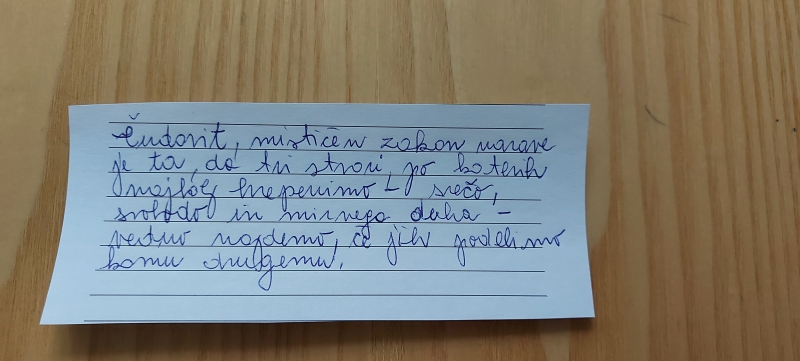 Čudovit, mističen zakon narave
je ta, da tri stvari, po katerih
najbolj hrepenimo – srečo,
svobodo in mirnega duha –
vedno najdemo, če jih podelimo
komu drugemu.